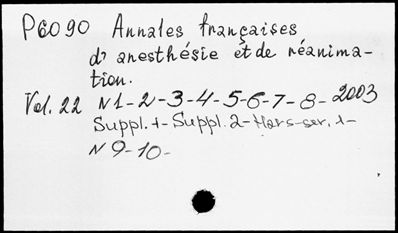 P6090 Annales françaises
d'anesthésie et de réanima-
tion.
Vol. 22 N1-2-3-4-5-6-7-8- 2003
Suppl. 1- Suppl. 2- Hors-ser. 1-
N 9-10-